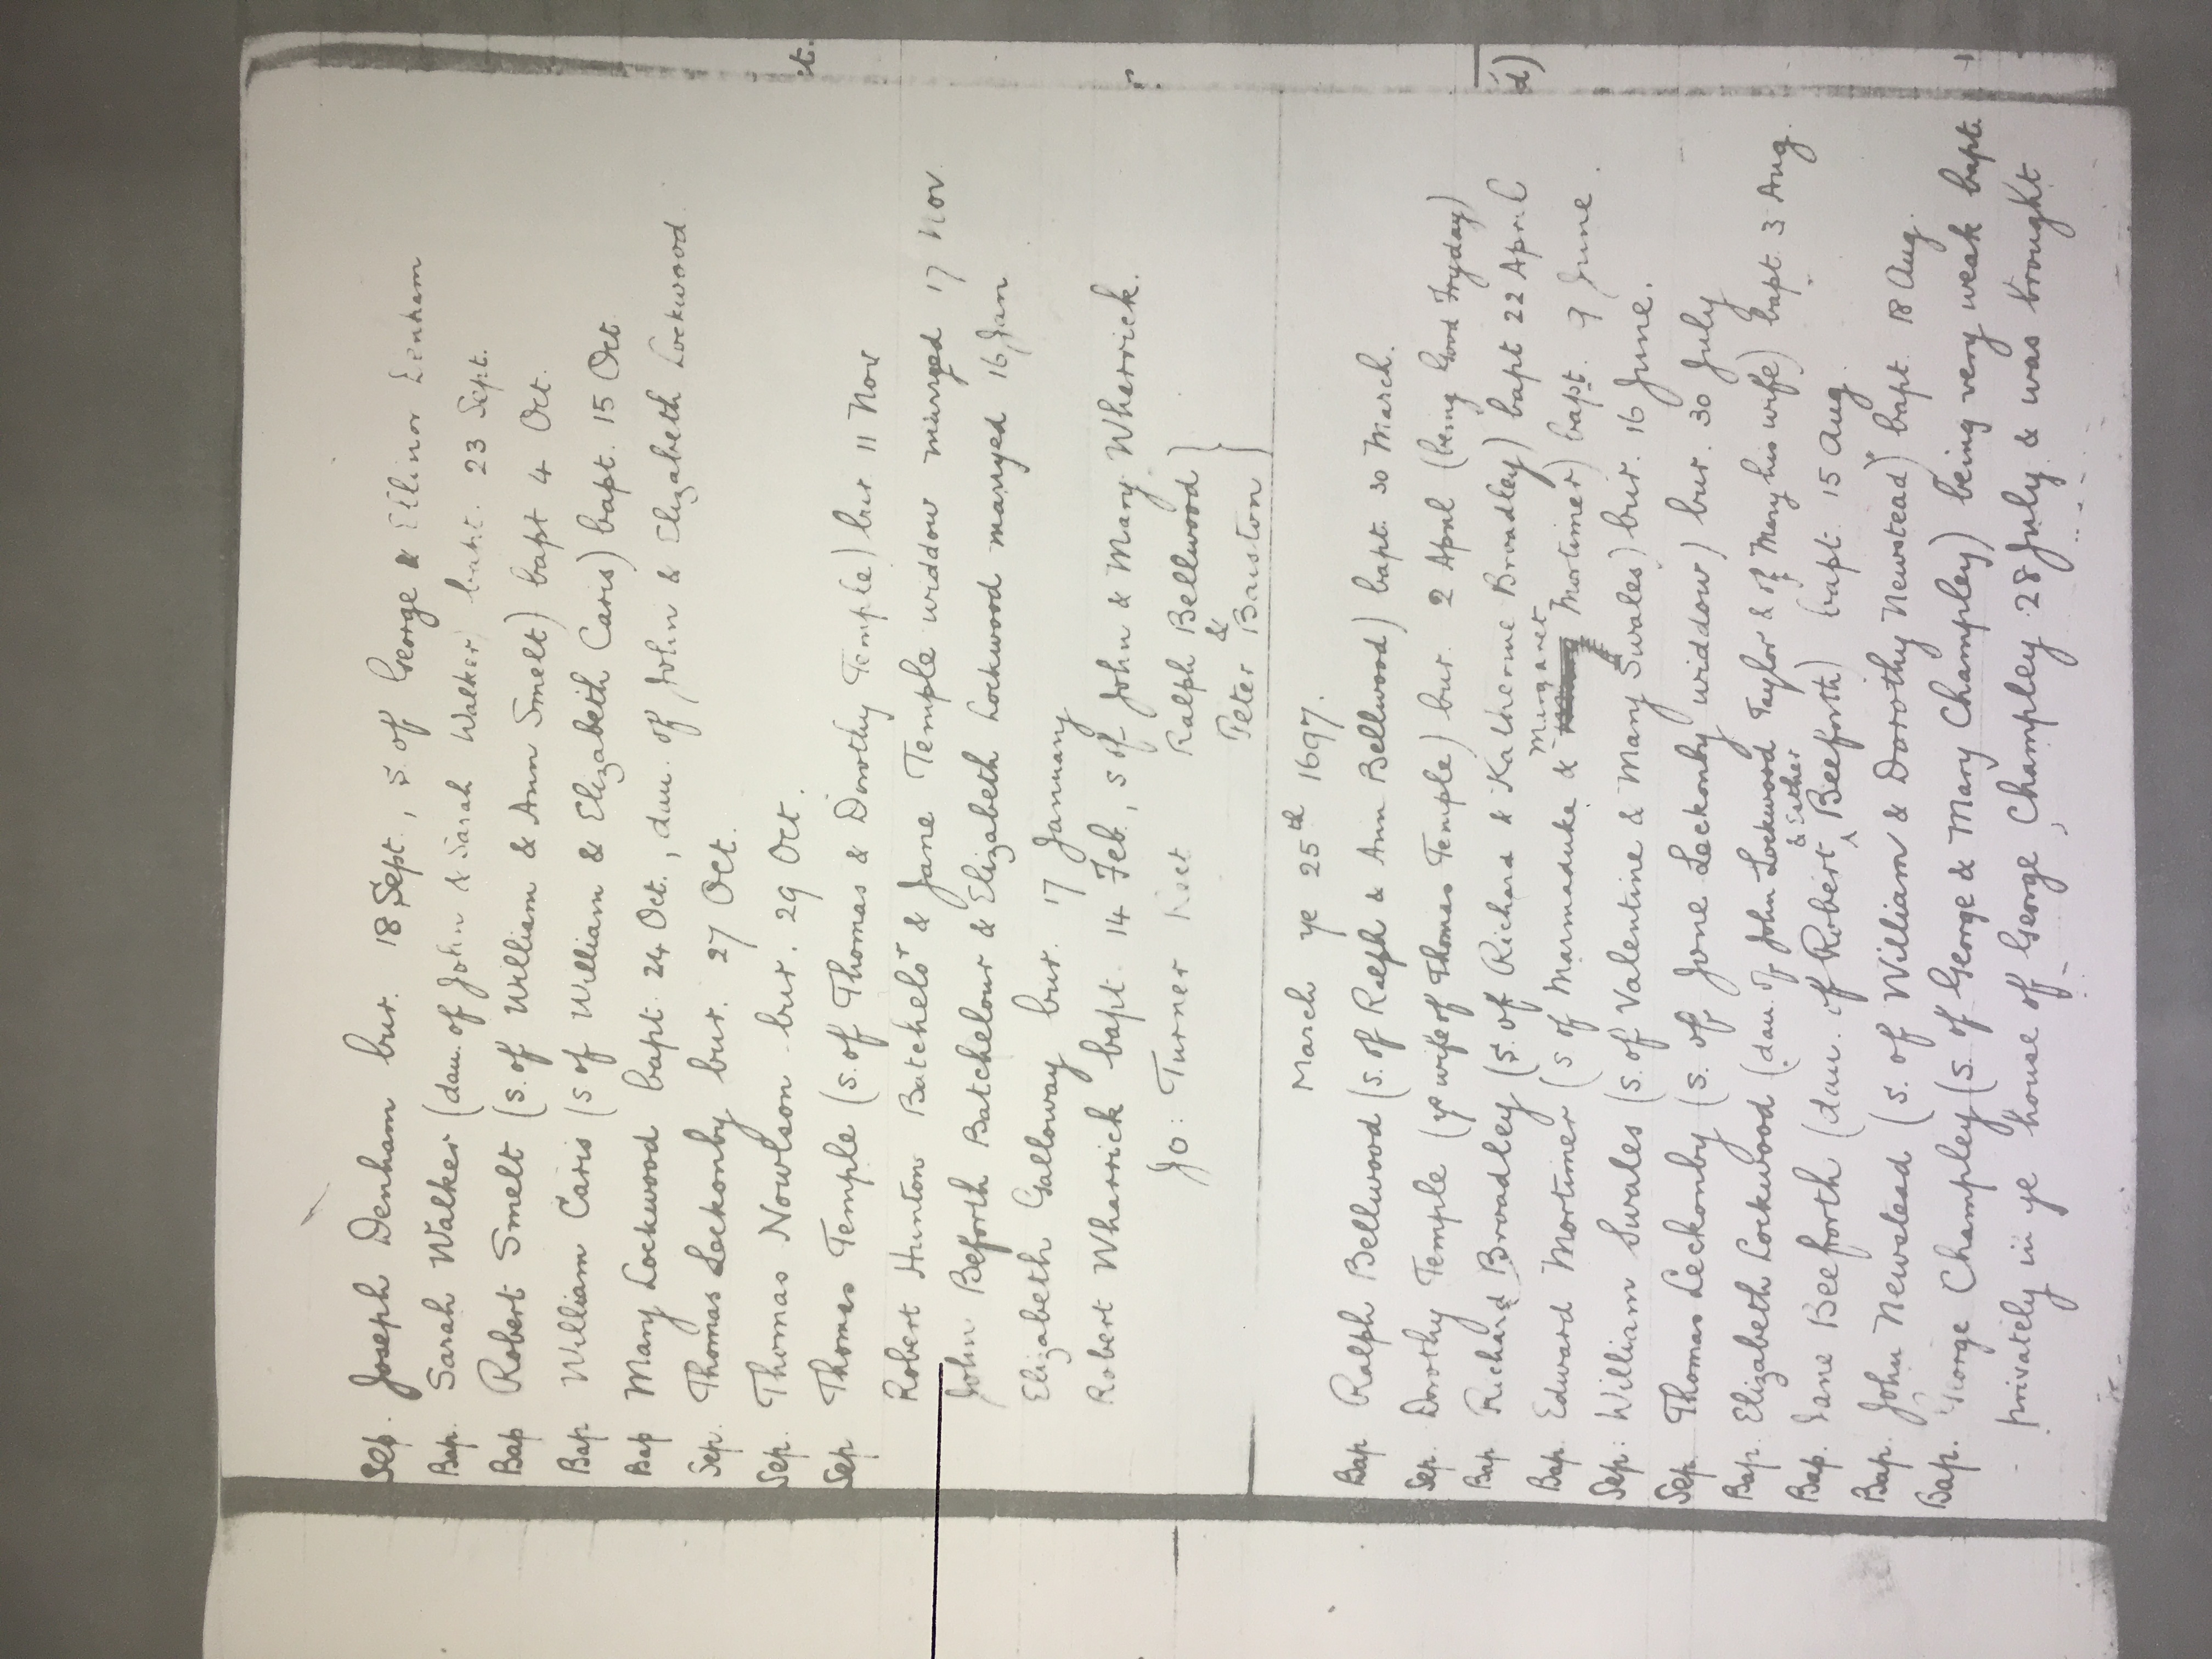 Sep. Joseph Denham bur. 18 Sept., s. of George & Elinor Denham
Bap. Sarah Walker (dau. of John & Sarah Walker bapt. 23 Sept.
Bap Robert Smelt (s. of William & Ann Smelt) bapt 4 Oct.
Bap William Caris (s of William & Elizabeth Caris) bapt. 15 Oct
Bap Mary Lockwood bapt 24 Oct., dau. of John & Elizabeth Lockwood
Sep. Thomas Leckonby bur. 27 Oct.
Sep. Thomas Nowlson bur. 29 Oct.
Sep Thomas Temple (s. of Thomas & Dorothy Temple) bur 11 Nov
Robert Hunton Batchelor & Jane Temple widdow marryed 17 Nov
John Beforth Batchelour & Elizabeth Lockwood marryed 16 Jan
Elizabeth Galloway bur. 17 January
Robert Wharrick bapt. 14 Feb., s of John & Mary Wharrick.
Jo: Turner Rect Ralph Bellwood }
&
Peter Baiston
March ye 25th 1697.
Bap Ralph Bellwood (s. of Ralph & Ann Bellwood) bapt. 30 March.
Sep. Dorothy Temple (ye wife of Thomas Temple) bur. 2 April (being Good Fryday)
Bap Richard Broadley (s. of Richard & Katherine Broadley) bapt 22 April
Bap. Edward Mortimer (s of Marmaduke & Margaret Mortimer) bapt. 9 June.
Sep: William Swales (s. of Valentine & Mary Swales) bur. 16 June.
Sep. Thomas Leckonby (s. of Jone Leckonby widdow) bur. 30 July
Bap. Elizabeth Lockwood (dau. of John Lockwood Taylor & of Mary his wife) bapt. 3 Aug.
Bap. Jane Beeforth (dau. of Robert & Esther Beeforth) bapt. 15 Aug.
Bap. John Newstead (s. of William & Dorothy Newstead) bapt. 18 Aug.
Bap. George Champley (s. of George & Mary Champley) being very weak bapt.
privately in ye house of George Champley 28 July & was brought